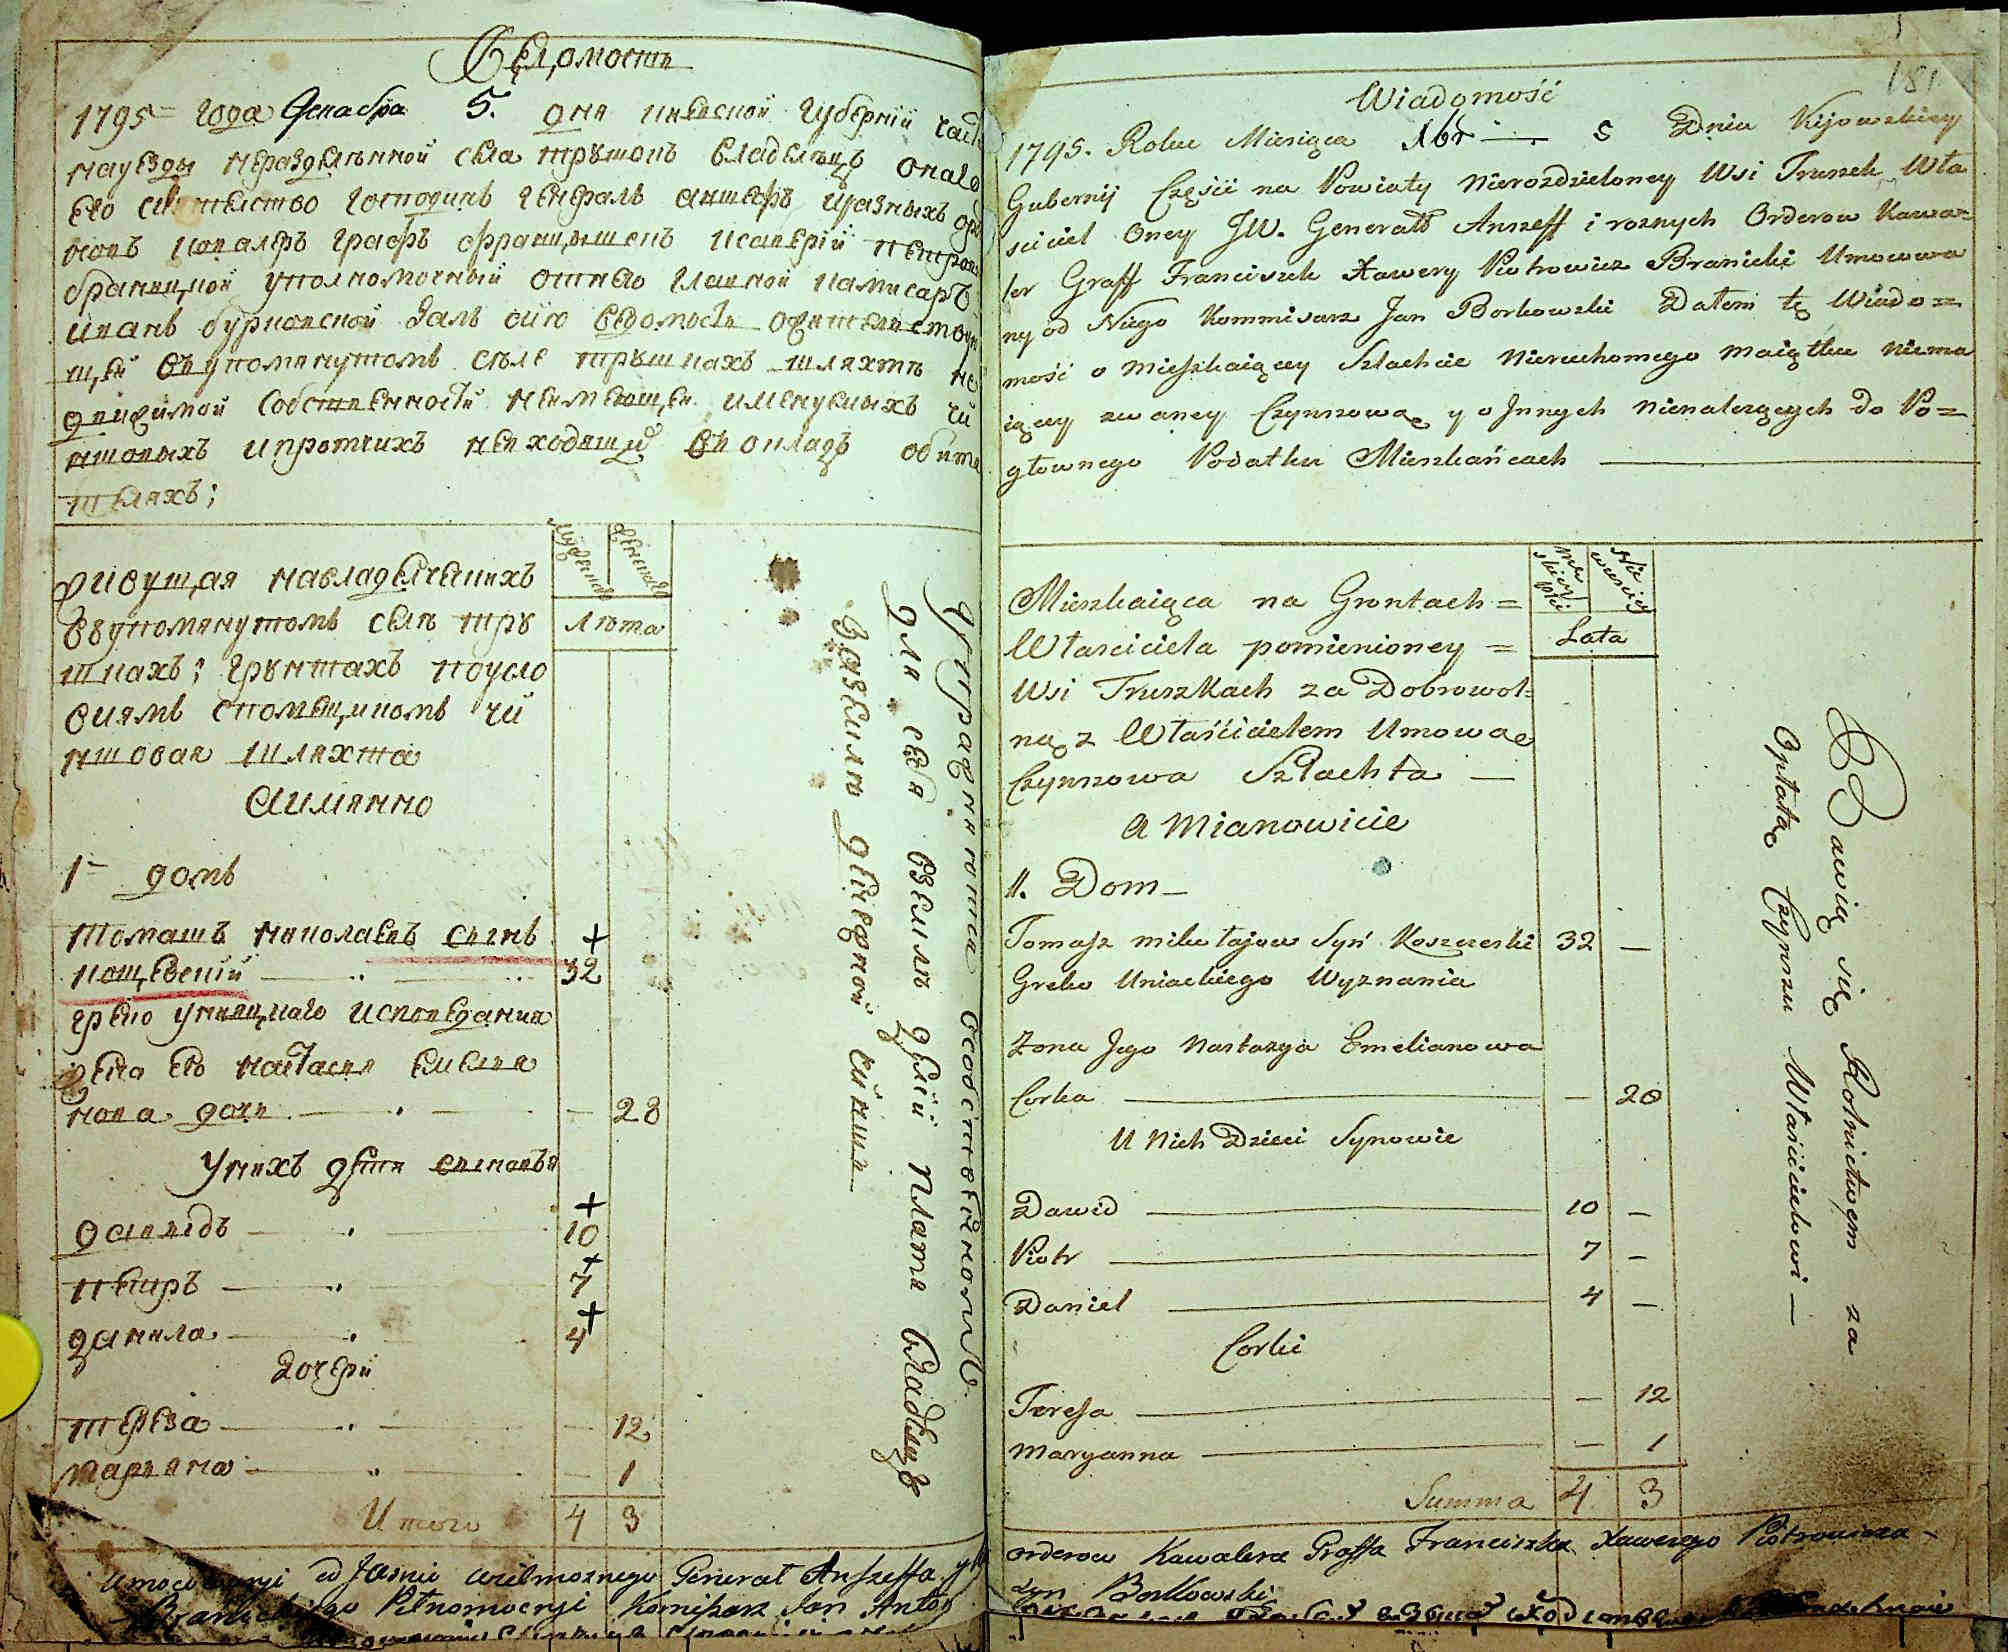 Ведомость
1795 года Декабря 5. дня киевской Губернiй части
науезды нераздѣленной села трушокъ владѣлецъ онаго
его сиятелство Господинъ генералъ аншефъ иразныхъ орде
новъ ковалеръ графъ францышекъ ксаверiй петровъ
браницкой уполномочный отнего главной камисаръ
иванъ бурковской далъ сию ведомость о жителствую
щей въ упомянутомъ селе трушкахъ шляхтѣ не
движимой собственности неимеющей имянуемыхъ чи
ншовыхъ и протчихъ невходящи въ окладъ обита
теляхъ;
Мужеска
Женска
лета
живущая навладѣлческихъ
въупомянутомъ селѣ тру
шкахъ; грунтахъ поусло
виямъ спомѣщикомъ чи
ншовая шляхта
аимянно
1 домъ
томашъ николаевъ сынъ
кощевский 32
греко униацкаго исповедания
жена его настасия емелия
нова дочь — 28
Унихъ дети сыновья
давыдъ 10
петръ 7
данила 4
дочери
тереза — 12
марияна — 1
Итого 4 3
Упражняются хлебопашествомъ
для себя въземлѣ платя владѣлцу
чинша
Umocowany od Jasnie wielmoznego Generał Anszeffa y
Branickiego Pełnomocny Komisarz Jan Antoy
181
Wiadomość
1795. Roku Miesiąca Xbr — 5 Dnia Kijowskiey
Gubernij Części na Powiaty nierozdzieloney Wsi Truszek Wła
sciciel Oney JW. Generał Anszeff i roznych Orderow Kawa=
ler Graff Franciszek Xawery Piotrowicz Branicki Umocowa
ny od Niego Kommisarz Jan Borkowski Dałem tę Wiado=
mość o mieszkaiącey Szlachcie nieruchomego maiątku niema
iącey zwaney Czynszową y o Jnnych nienależących do Po=
głownego Podatku Mieszkańcach
męskiey płci
Niewiesciey
Lata
Mieszkaiąca na Gruntach=
Własciciela pomienioney =
Wsi Truszkach za Dobrowol=
ną z Właścicielem Umową
Czynszowa Szlachta —
a mianowicie
1. Dom —
Tomasz mikołajow Syn Koszczeski 32 —
Greko Uniackiego Wyznania
Zona Jego nastazya Emelianowa
Corka — 28
U nich Dzieci Synowie
Dawid 10 —
Piotr 7 —
Daniel 4 —
Corki
Teresa — 12
Maryanna — 1
Summa 4 3
Bawią się Rolnictwem za
Opłatą Czynszu Właścicielowi —
orderow Kawalera Graffa Franciszka Xawerego Piotrowicza
Jan Borkowski